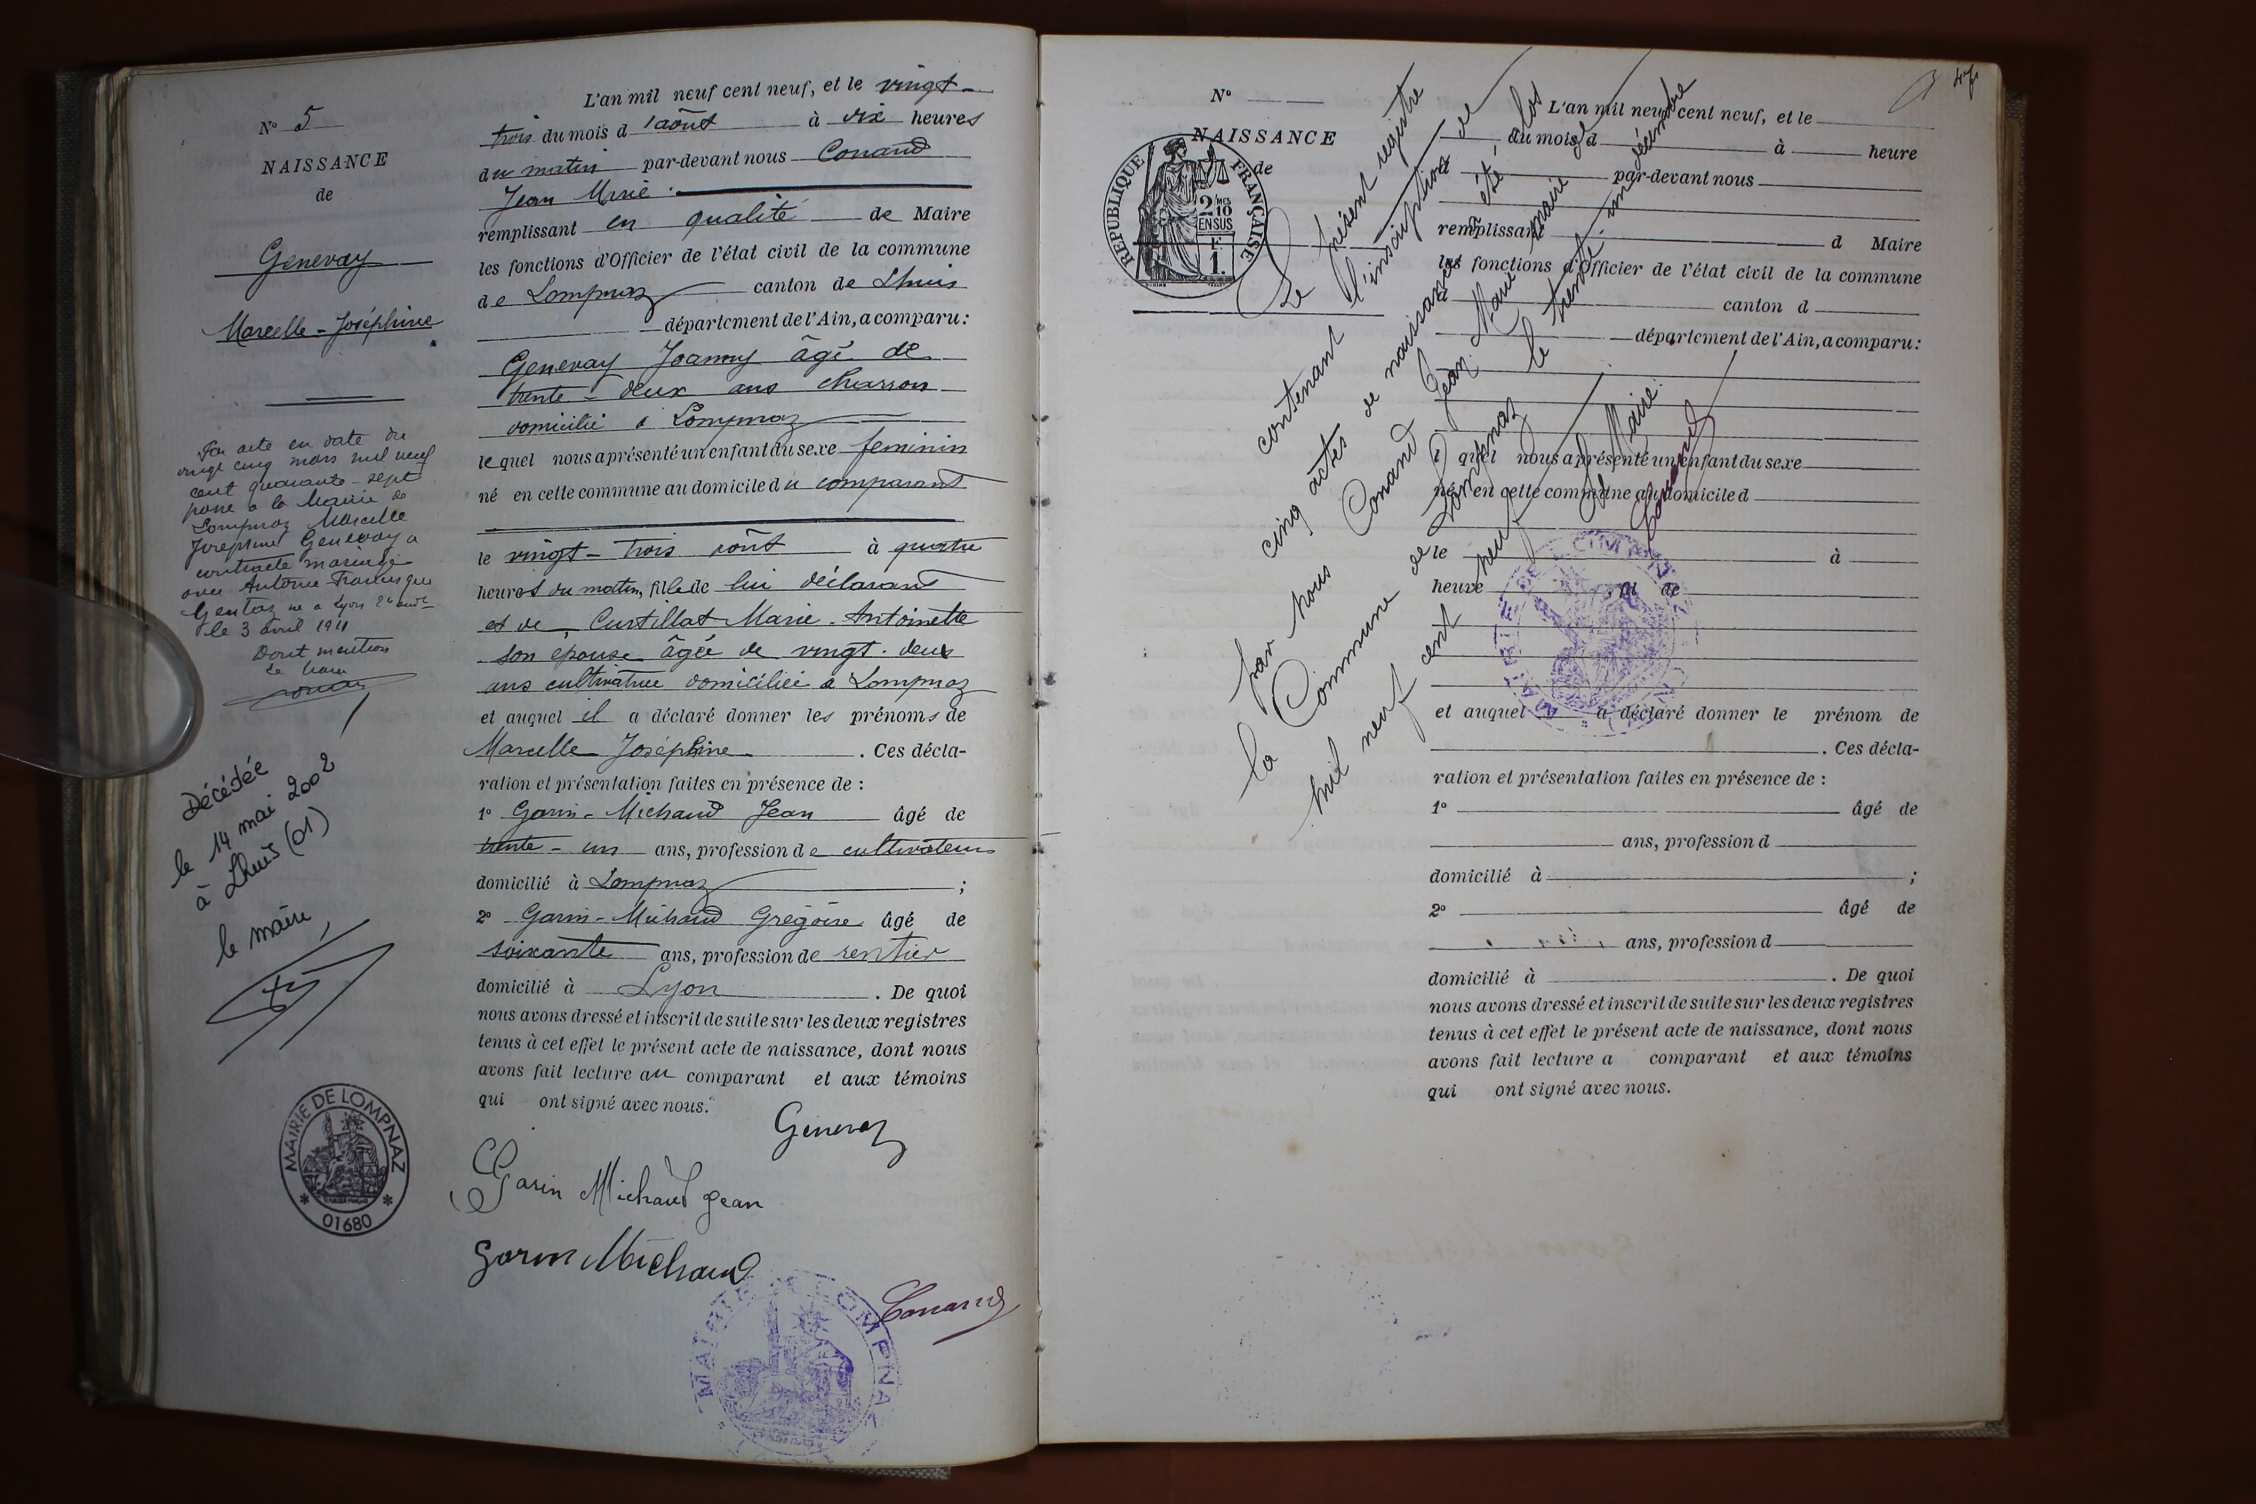 N° 5
NAISSANCE
de
Genevay
Marcelle - Joséphine
Par acte en date du
vingt cinq mars mil neuf
cent quarante - sept
passé a la Mairie de
Lompnaz Marcelle
Josephine Genevay a
contracté mariage
avec Antoine Francisque
Gentaz né a Lyon 2e
le 3 avril 1911
Dont mention
Le Maire
Décédée
le 14 mai 2002
à Lhuis (01)
le maire,
MAIRIE DE LOMPNAZ
01680
L'an mil neuf cent neuf, et le vingt-
trois du mois d'août à dix heures
du matin par-devant nous Conand
Jean Marie
remplissant en qualité de Maire
les fonctions d'Officier de l'état civil de la commune
de Lompnaz canton de Lhuis
département de l'Ain, a comparu:
Genevay Joanny âgé de
trente-deux ans charron
domicilié à Lompnaz
lequel nous a présenté un enfant du sexe feminin
né en cette commune au domicile du comparant
le vingt-trois août à quatre
heures du matin, fille de lui déclarant
et de Curtillat Marie-Antoinette
son épouse âgée de vingt-deux
ans cultivatrice domiciliée à Lompnaz
et auquel il a déclaré donner les prénoms de
Marcelle Joséphine. Ces décla-
ration et présentation faites en présence de :
1° Garin-Michaud Jean âgé de
trente-un ans, profession de cultivateur
domicilié à Lompnaz ;
2° Garin-Michaud Grégoire âgé de
soixante ans, profession de rentier
domicilié à Lyon. De quoi
nous avons dressé et inscrit de suite sur les deux registres
tenus à cet effet le présent acte de naissance, dont nous
avons fait lecture au comparant et aux témoins
qui ont signé avec nous.
Genevay
Garin Michaud Jean
Garin Michaud
Conand
MAIRIE DE LOMPNAZ
N°
NAISSANCE
de
REPUBLIQUE FRANÇAISE
2/10 MES
EN SUS
1 F
L'an mil neuf cent neuf, et le
du mois d à heure
d par-devant nous
remplissant d Maire
les fonctions d'Officier de l'état civil de la commune
d canton d
département de l'Ain, a comparu:
l quel nous a présenté un enfant du sexe
né en cette commune au domicile d
le à
heure , fil de
et auquel a déclaré donner le prénom de
. Ces décla-
ration et présentation faites en présence de :
1° âgé de
ans, profession d
domicilié à ;
2° âgé de
ans, profession d
domicilié à . De quoi
nous avons dressé et inscrit de suite sur les deux registres
tenus à cet effet le présent acte de naissance, dont nous
avons fait lecture a comparant et aux témoins
qui ont signé avec nous.
Le présent registre
contenant l'inscription de
cinq actes de naissances a été clos
par nous Conand Jean Marie maire de
la Commune de Lompnaz le trente-un décembre
mil neuf cent neuf
Le Maire
Conand
MAIRIE DE LOMPNAZ